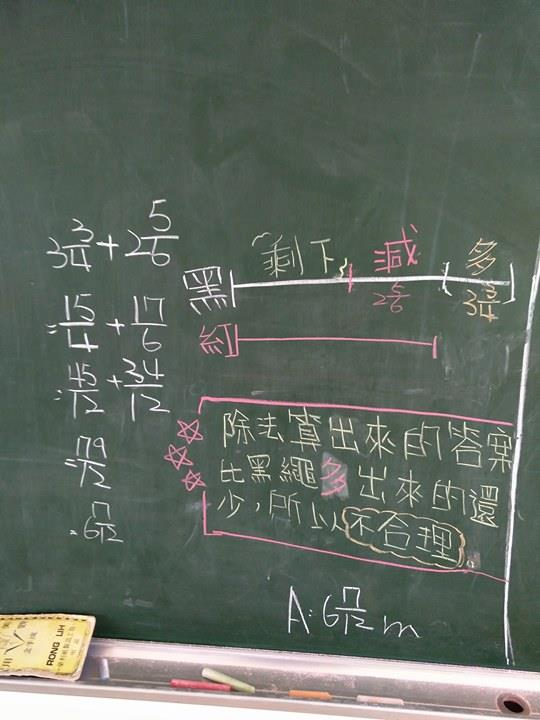 3 3/4 + 2 5/6
= 15/4 + 17/6
= 45/12 + 34/12
= 79/12
= 6 7/12
剩下 減 多
黑 2 5/6 3 3/4
紅
除法算出來的答案
比黑繩多出來的還
少,所以不合理。
A: 6 7/12 m
RONG LIH